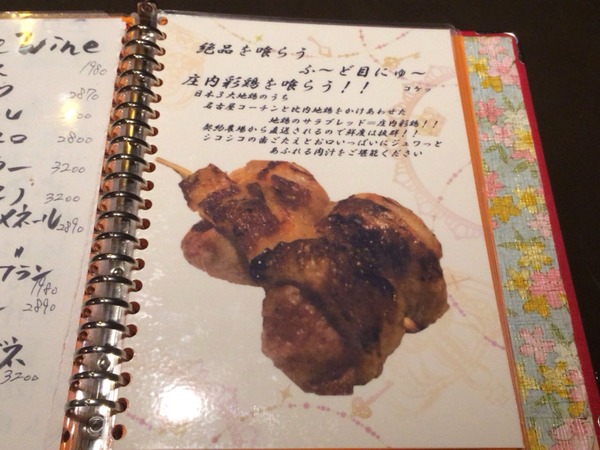 e Wine
1980
2870
2800
ー 3200
3200
メネール 2890
〃
ブラン
1980
2890
3200
絶品を喰らう
ふ〜ど目にゅ〜
庄内彩鶏を喰らう！！ コケッ
日本3大地鶏のうち
名古屋コーチンと比内地鶏をかけあわせた
地鶏のサラブレッド=庄内彩鶏！！
契約農場から直送されるので鮮度は抜群！！
シコシコの歯ごたえとお口いっぱいにジュワっと
あふれる肉汁をご堪能ください